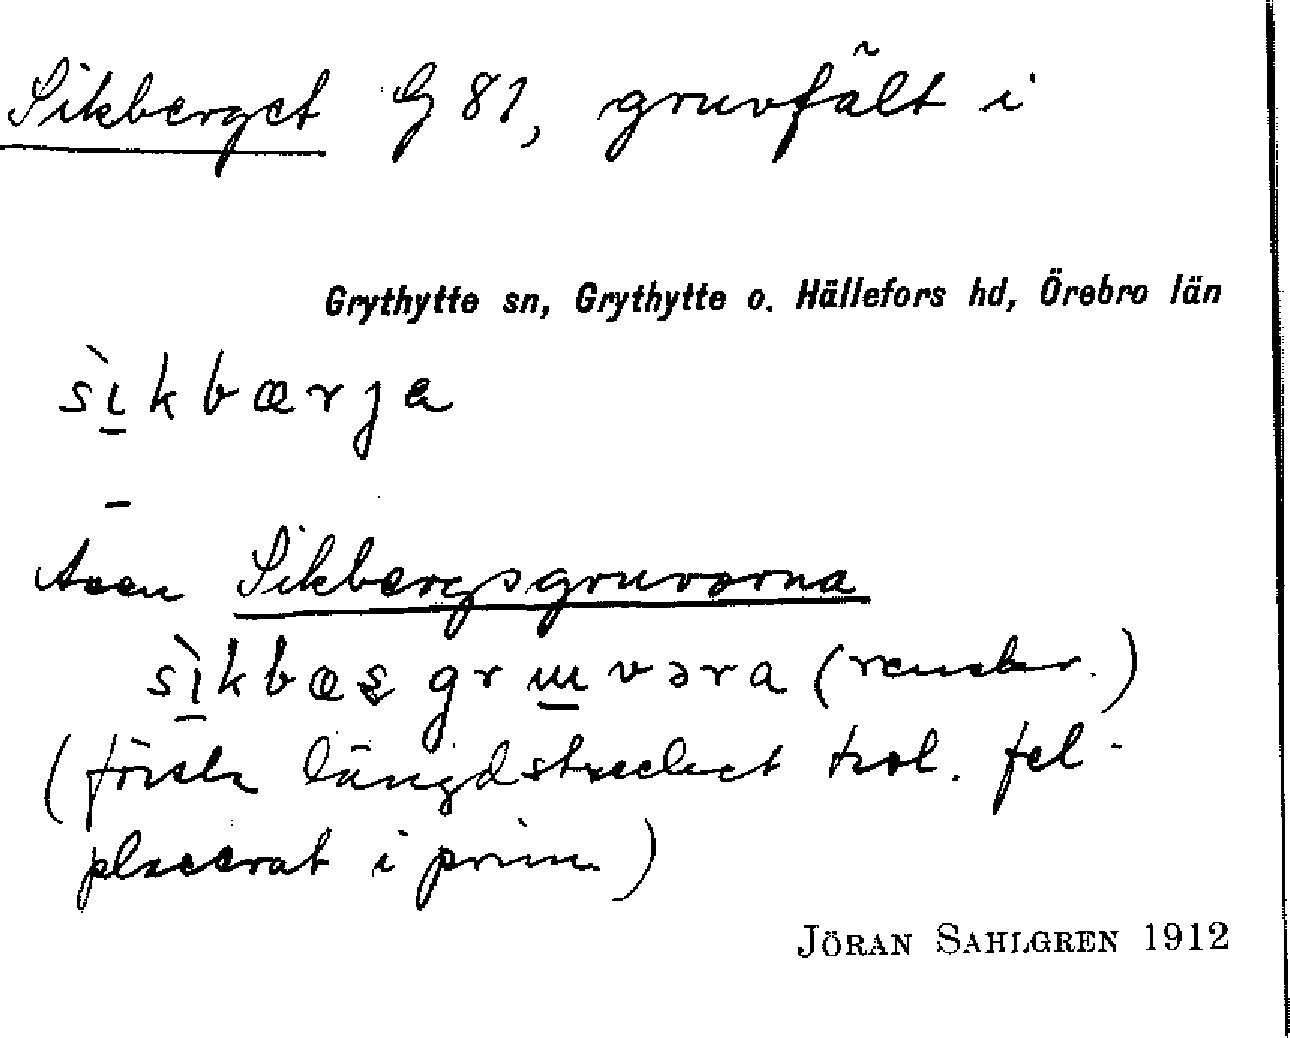 Sikberget G 81, gruvfält i
Grythytte sn, Grythytte o. Hällefors hd, Örebro län
sìkbærja
även Sikbergsgruvorna
sìkbæsgruvəra (renskr.)
(första längdstrecket trol. fel-
placerat i prim.)
JÖRAN SAHLGREN 1912